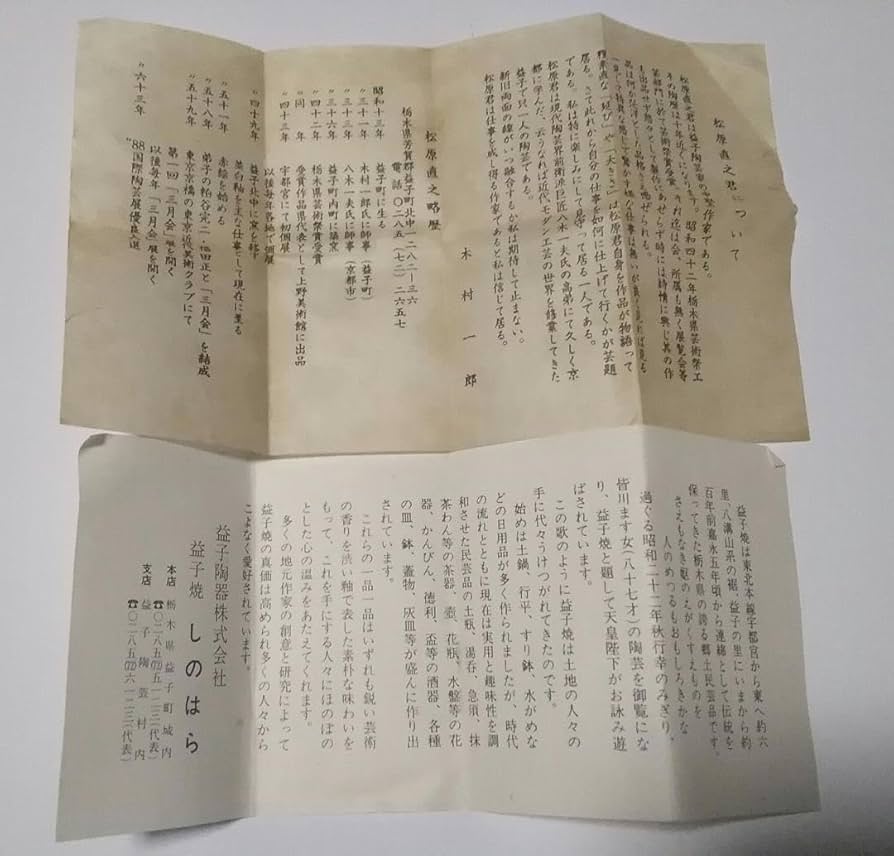 松原直之君について
木村一郎
松原直之君は益子陶芸家の中堅作家である。
その陶歴は十年近くになります。昭和四十二年栃木県芸術祭工
芸部門に於て芸術祭賞受賞、それ迄は会、所属も無く展覧会等
も出品せず悠々として製作にあせらず時には詩情に興じ其の作
居る。さて此れから自分の仕事を如何に仕上げて行くかが芸題
である。私は特に楽しみにして見守って居る一人である。
松原君は現代陶芸界前衛派巨匠八木一夫氏の高弟にて久しく京
都に学んだ、云うなれば近代モダン工芸の世界を修業してきた
益子で只一人の陶芸である。
新旧両面の線がいつ融合するか私は期待して止まない。
松原君は仕事を成し得る作家であると私は信じて居る。
松原直之略歴
栃木県芳賀郡益子町北中一二八二ー三六
電話〇二八五(七二)二六五七
昭和十三年 益子町に生る
〃三十一年 木村一郎氏に師事(益子町)
〃三十三年 八木一夫氏に師事(京都市)
〃三十六年 益子町内町に築窯
〃四十二年 栃木県芸術祭賞受賞
〃同年 受賞作品県代表として上野美術館に出品
〃四十三年 宇都宮にて初個展
以後毎年各地で個展
〃四十九年 益子町北中に窯を移す
藁白釉を主な仕事として現在に至る
〃五十一年 赤絵を始める
〃五十八年 弟子の粕谷完二・福田正と「三月会」を結成
〃五十九年 東京京橋の東京近美術クラブにて
第一回「三月会」展を開く
以後毎年「三月会」展を開く
〃六十三年 "88国際陶芸展優良入選
益子焼は東北本線宇都宮から東へ約六
里、八溝山系の裾、益子の里にいまから約
百年前嘉永五年頃から連綿として伝統を
保ってきた栃木県の誇る郷土民芸品です。
さえもなき媼のえがくすえものを
人のめづるもおもしろきかな
過ぐる昭和二十二年秋行幸のみぎり、
皆川ます女(八十七才)の陶芸を御覧にな
り、益子焼と題して天皇陛下がお詠み遊
ばされています。
この歌のように益子焼は土地の人々の
手に代々うけつがれてきたのです。
始めは土鍋、行平、すり鉢、水がめな
どの日用品が多く作られましたが、時代
の流れとともに現在は実用と趣味性を調
和させた民芸品の土瓶、湯呑、急須、抹
茶わん等の茶器、壺、花瓶、水盤等の花
器、かんびん、徳利、盃等の酒器、各種
の皿、鉢、蓋物、灰皿等が盛んに作り出
されています。
これらの一品一品はいずれも鋭い芸術
の香りを渋い釉で表した素朴な味わいを
もって、これを手にする人々にほのぼの
とした心の温みをあたえてくれます。
多くの地元作家の創意と研究によって
益子焼の真価は高められ多くの人々から
こよなく愛好されています。
益子陶器株式会社
益子焼 しのはら
本店 栃木県益子町城内
☎〇二八五(72)五一二三(代表)
支店 益子陶芸村内
☎〇二八五(72)六一二三(代表)